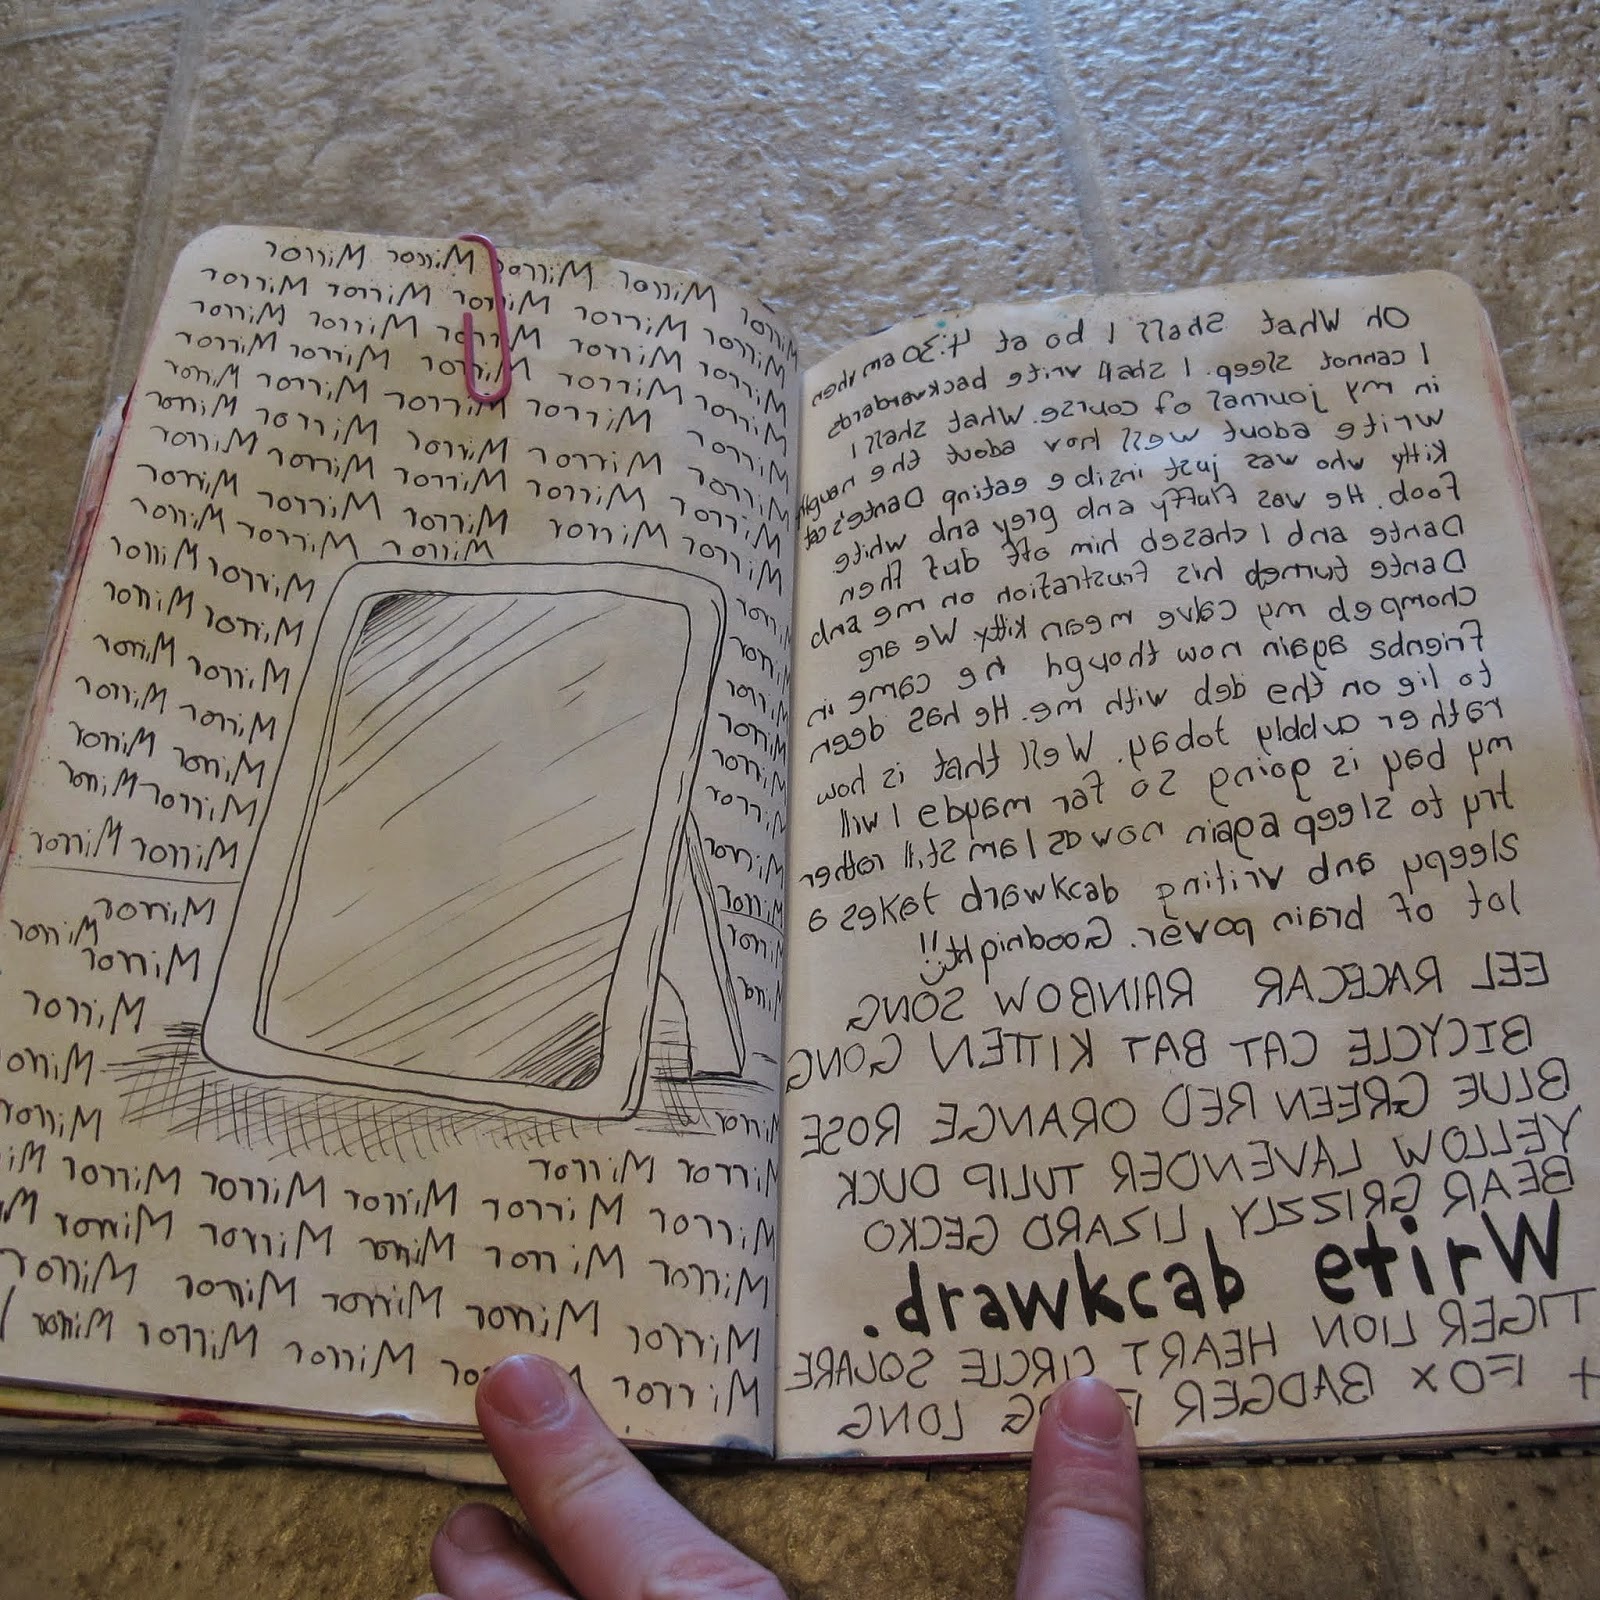 Mirror Mirror Mirror Mirror Mirror
Mirror Mirror Mirror Mirror Mirror
Mirror Mirror Mirror Mirror Mirror
Mirror Mirror Mirror Mirror Mirror
Mirror Mirror Mirror Mirror Mirror
Mirror Mirror Mirror Mirror Mirror
Mirror Mirror Mirror Mirror Mirror
Mirror Mirror Mirror Mirror Mirror
Mirror Mirror Mirror Mirror Mirror
Mirror Mirror Mirror Mirror
Mirror Mirror Mirror
Mirror Mirror Mirror
Mirror Mirror Mirror
Mirror Mirror Mirror
Mirror Mirror Mirror
Mirror Mirror Mirror
Mirror Mirror Mirror
Mirror Mirror
Mirror Mirror
Mirror Mirror
Mirror
Mirror
Mirror Mirror
Mirror Mirror Mirror
Mirror Mirror Mirror Mirror Mirror
Mirror Mirror Mirror Mirror Mirror
Mirror Mirror Mirror Mirror Mirror
Mirror Mirror Mirror Mirror
Mirror
Oh What Shall I Do at 4:30 am when
I cannot sleep. I shall write backwardards
in my journal of course. What shall I
write about well how about the naughty
Kitty who was just inside eating Dante's cat
Food. He was fluffy and grey and white
Dante and I chased him off but then
Dante turned his frustration on me and
chomped my calve mean kitty We are
Friends again now though he came in
to lie on the bed with me. He has been
rather cuddly today. Well that is how
my day is going so far maybe I will
try to sleep again now as I am still rather
sleepy and writing drawkcab takes a
lot of brain power. Goodnight!!
EEL RACECAR RAINBOW SONG
BICYCLE CAT BAT KITTEN GONG
BLUE GREEN RED ORANGE ROSE
YELLOW LAVENDER TULIP DUCK
BEAR GRIZZLY LIZARD GECKO
Write backward.
TIGER LION HEART CIRCLE SQUARE
+ FOX BADGER LONG